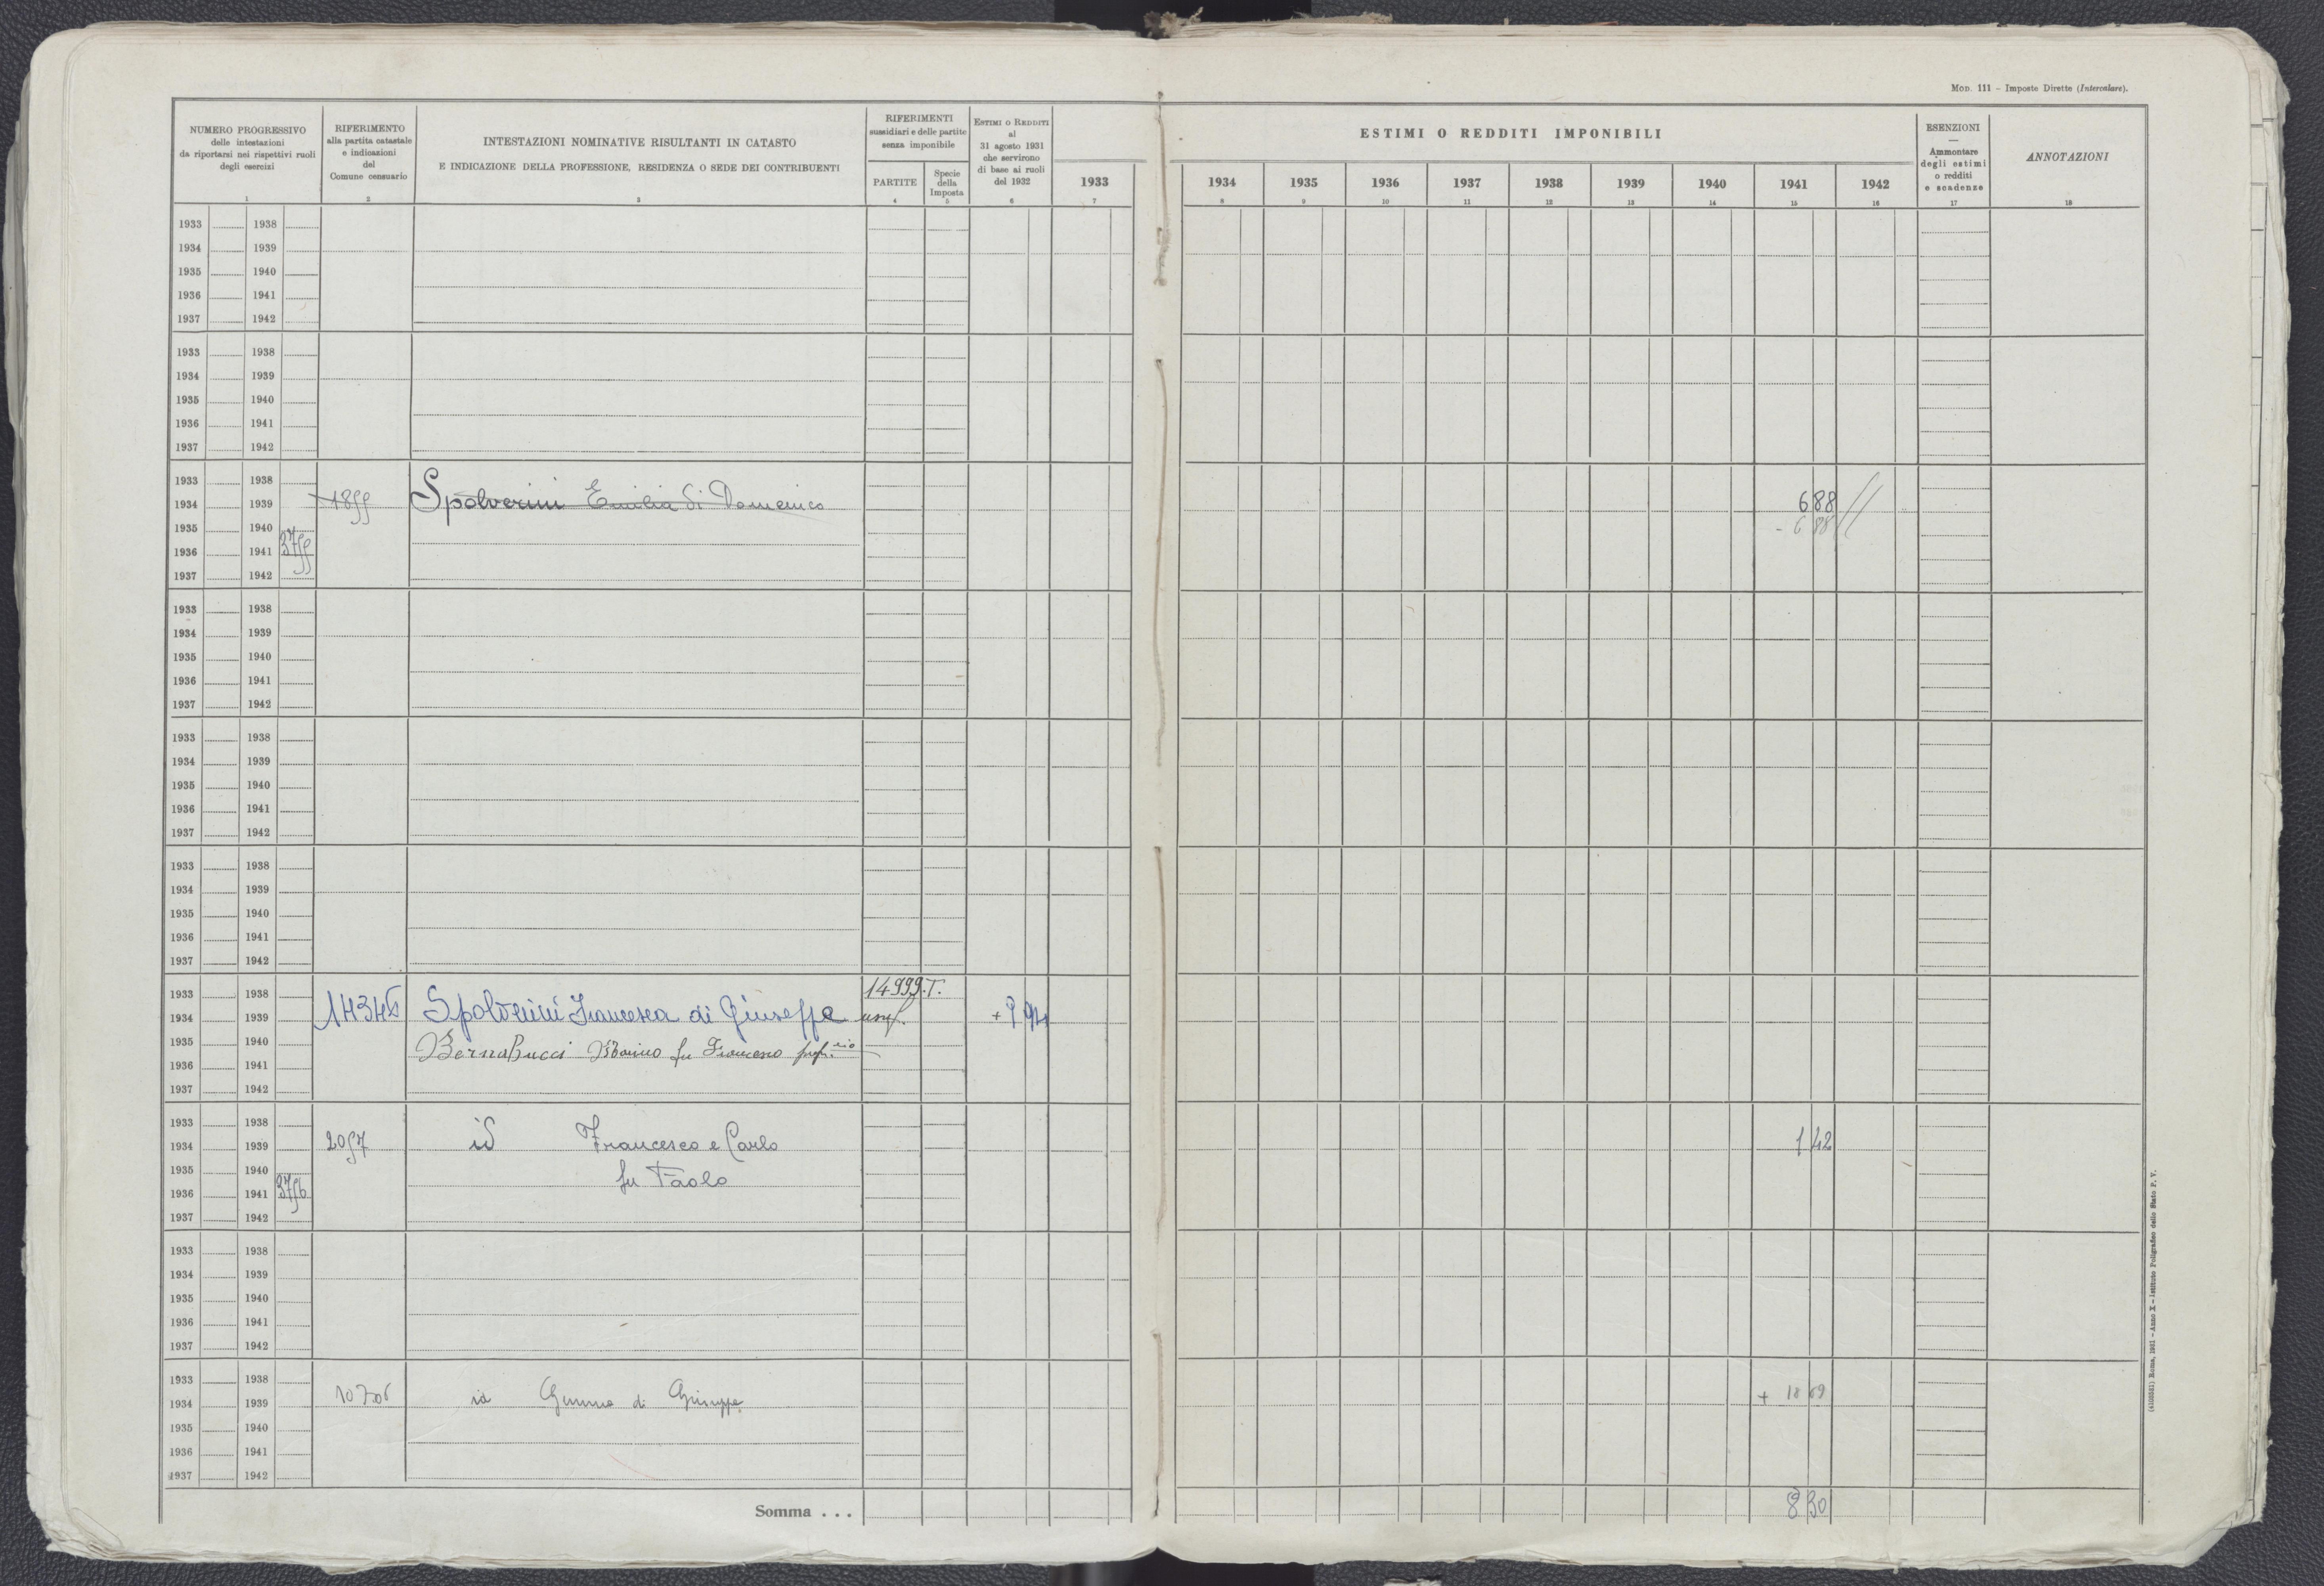 MOD. 111 – Imposte Dirette (Intercalare).
NUMERO PROGRESSIVO
delle intestazioni
da riportarsi nei rispettivi ruoli
degli esercizi
1
RIFERIMENTO
alla partita catastale
e indicazioni
del
Comune censuario
2
INTESTAZIONI NOMINATIVE RISULTANTI IN CATASTO
E INDICAZIONE DELLA PROFESSIONE, RESIDENZA O SEDE DEI CONTRIBUENTI
3
RIFERIMENTI
sussidiari e delle partite
senza imponibile
PARTITE
4
Specie
della
Imposta
5
ESTIMI O REDDITI
al
31 agosto 1931
che servirono
di base ai ruoli
del 1932
6
1933
7
ESTIMI O REDDITI IMPONIBILI
1934 1935 1936 1937 1938 1939 1940 1941 1942
8 9 10 11 12 13 14 15 16
ESENZIONI
—
Ammontare
degli estimi
o redditi
e scadenze
17
ANNOTAZIONI
18
1933 1938
1934 1939
1935 1940
1936 1941
1937 1942
1933 1938
1934 1939
1935 1940
1936 1941
1937 1942
1933 1938
1934 1939 1855 Spolverini Emilia di Domenico 688
1935 1940 - 688
1936 1941 3755
1937 1942
1933 1938
1934 1939
1935 1940
1936 1941
1937 1942
1933 1938
1934 1939
1935 1940
1936 1941
1937 1942
1933 1938
1934 1939
1935 1940
1936 1941
1937 1942
1933 1938 14999.T.
1934 1939 Spolverini Francesca di Giuseppe usuf. +
1935 1940 Bernabucci fu Francesco
1936 1941
1937 1942
1933 1938
1934 1939 2057 id Francesco e Carlo 142
1935 1940 fu Paolo
1936 1941 3756
1937 1942
1933 1938
1934 1939
1935 1940
1936 1941
1937 1942
1933 1938
1934 1939 10706 id Gemma di Giuseppe + 18 69
1935 1940
1936 1941
1937 1942
Somma . . . 830
(4103551) Roma, 1931 – Anno X – Istituto Poligrafico dello Stato P. V.